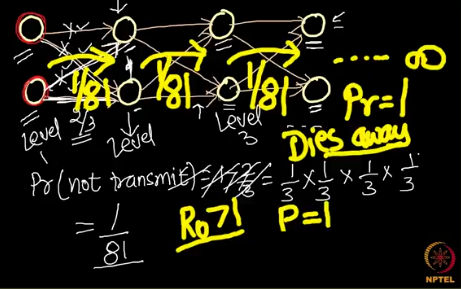 1/81 1/81 1/81 ..... ∞
2/3
Level Level Level 3
Pr = 1
Dies away
Pr (not transmit) = = 1/3 × 1/3 × 1/3 × 1/3
= 1/81
R₀ > 1 P = 1
NPTEL